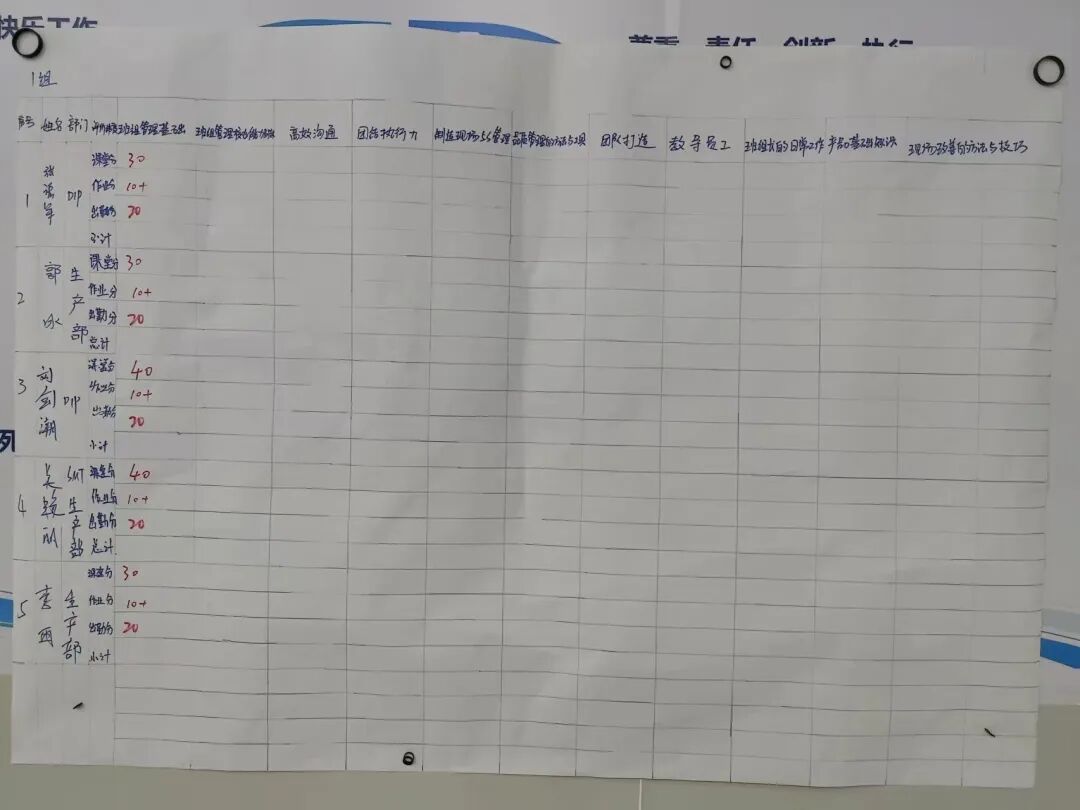 快乐工作
尊重 责任 创新 执行
1组
序号 姓名 部门 班组管理基础 高效沟通 团结执行力 制造现场5S管理 品质管理的方法与工具 团队打造 教导员工 班组长的日常工作 产品基础知识 现场改善的方法与技巧
1 DIP 课堂分 30
作业分 10+
出勤分 20
小计
2 郭冰 生产部 课堂分 30
作业分 10+
出勤分 20
总计
3 刘剑潮 DIP 课堂分 40
作业分 10+
出勤分 20
小计
4 吴 SMT生产部 课堂分 40
作业分 10+
出勤分 20
总计
5 李雨 生产部 课堂分 30
作业分 10+
出勤分 20
小计
列